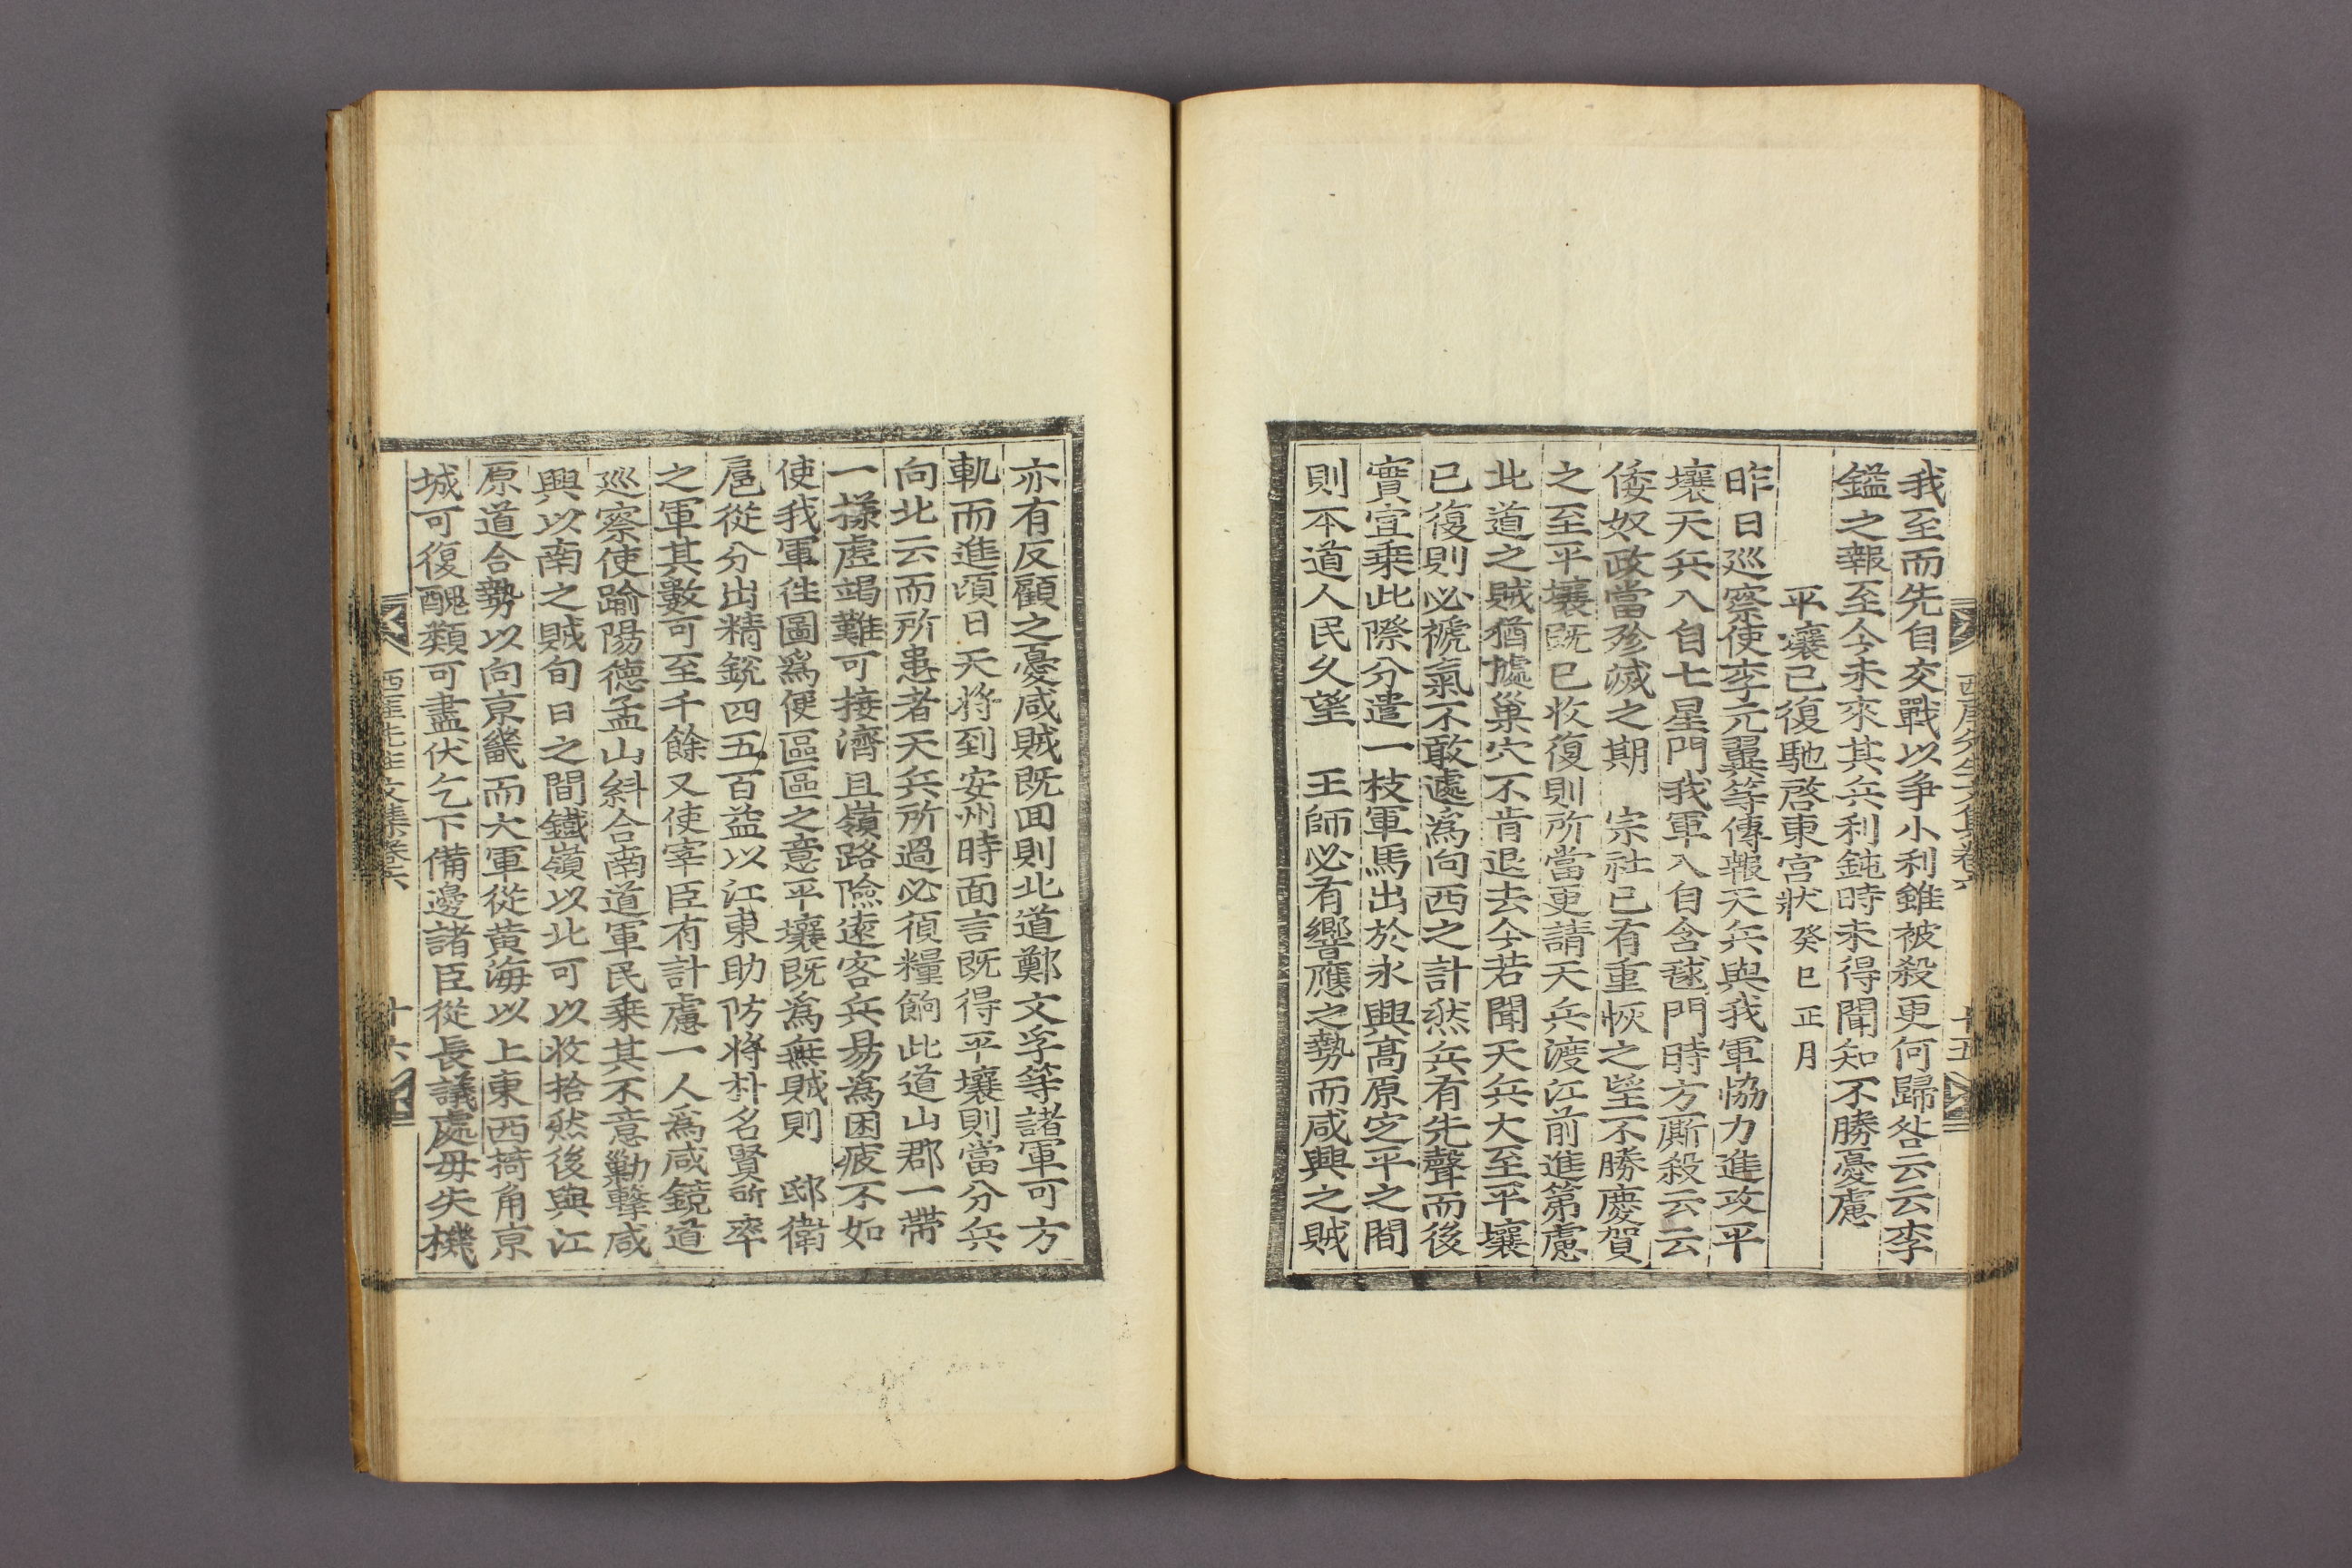 西厓先生文集卷六
十五
我至而先自交戰以爭小利雖被殺更何歸咎云云李
鎰之報至今未來其兵利鈍時未得聞知不勝憂慮
平壤已復馳啓東宮狀 癸巳正月
昨日巡察使李元翼等傳報天兵與我軍協力進攻平
壤天兵入自七星門我軍入自含毬門時方厮殺云云
倭奴政當殄滅之期 宗社已有重恢之望不勝慶賀
之至平壤既已收復則所當更請天兵渡江前進第慮
北道之賊猶據巢穴不肯退去今若聞天兵大至平壤
已復則必褫氣不敢遽爲向西之計然兵有先聲而後
實宜乘此際分遣一枝軍馬出於永興高原定平之間
則本道人民久望 王師必有響應之勢而咸興之賊
亦有反顧之憂咸賊既回則北道鄭文孚等諸軍可方
軌而進頃日天將到安州時面言既得平壤則當分兵
向北云而所患者天兵所過必須糧餉此道山郡一帶
一㨾虛竭難可接濟且嶺路險遠客兵易為困疲不如
使我軍徃圖爲便區區之意平壤既爲無賊則 邸衛
扈從分出精銳四五百益以江東助防將朴名賢所率
之軍其數可至千餘又使宰臣有計慮一人爲咸鏡道
巡察使踰陽德孟山糾合南道軍民乘其不意勦擊咸
興以南之賊旬日之間鐵嶺以北可以收拾然後與江
原道合勢以向京畿而大軍從黃海以上東西掎角京
城可復醜類可盡伏乞下備邊諸臣從長議處毋失機
西厓先生文集卷六
十六